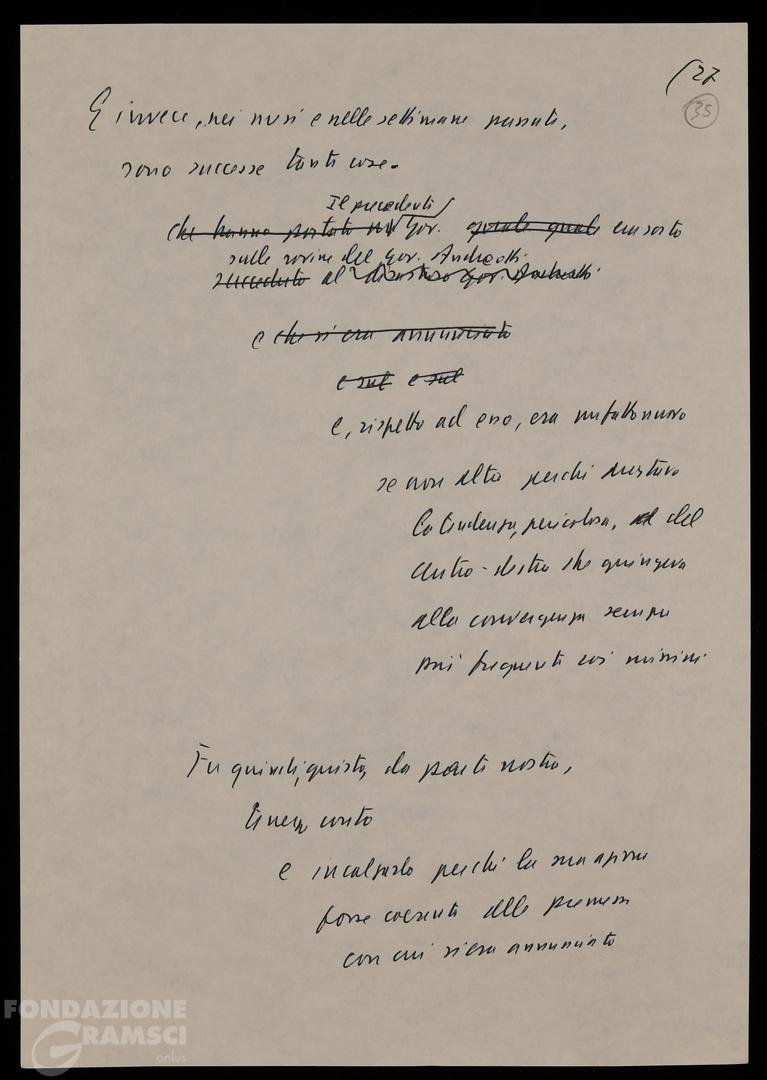 (27
35
E invece, nei mesi e nelle settimane passate,
sono successe tante cose.
Il precedente
che hanno portato Gov. quale era sorto
sulle rovine del gov. Andreotti
succeduto al disastroso gov. Andreotti
e che si era annunciato
e sul e sul
e, rispetto ad esso, era un fatto nuovo
se non altro perché
la tendenza, pericolosa, del
centro-destra che spingeva
alla convergenza sempre
più frequente coi missini
Fu quindi giusto, da parte nostra,
tener conto
e incalzarlo perché la sua azione
fosse coerente alle premesse
con cui si era annunciato
FONDAZIONE
GRAMSCI
onlus